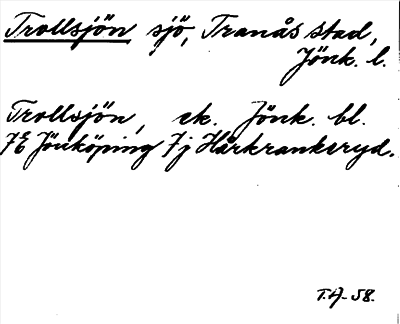 Trollsjön sjö, Tranås stad,
Jönk. l.
Trollsjön, ek. Jönk. bl.
7E Jönköping 7j Hårkrankeryd.
T.A-58.